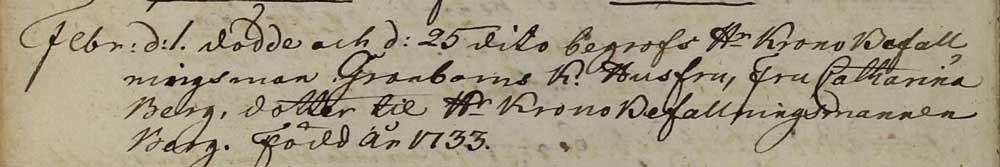 Febr: d: 1. dödde och d: 25 dito begrofs Hr Krono Befall
ningsman Granboms K. Husfru, Fru Catharina
Berg, dotter til Hr Krono Befallningsmannen
Berg. Född År 1733.